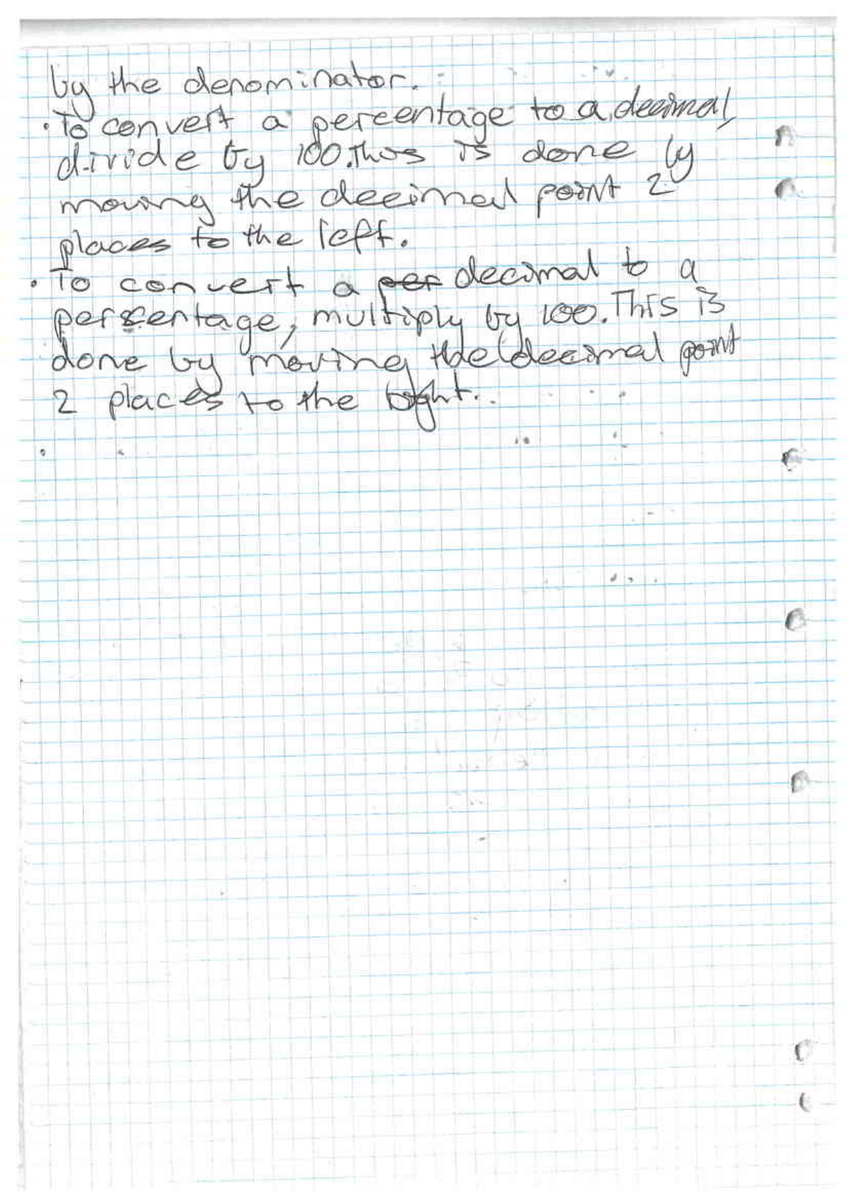 by the denominator.
· To convert a percentage to a decimal,
divide by 100. This is done by
moving the decimal point 2
places to the left.
· To convert a per decimal to a
percentage, multiply by 100. This is
done by moving the decimal point
2 places to the right.